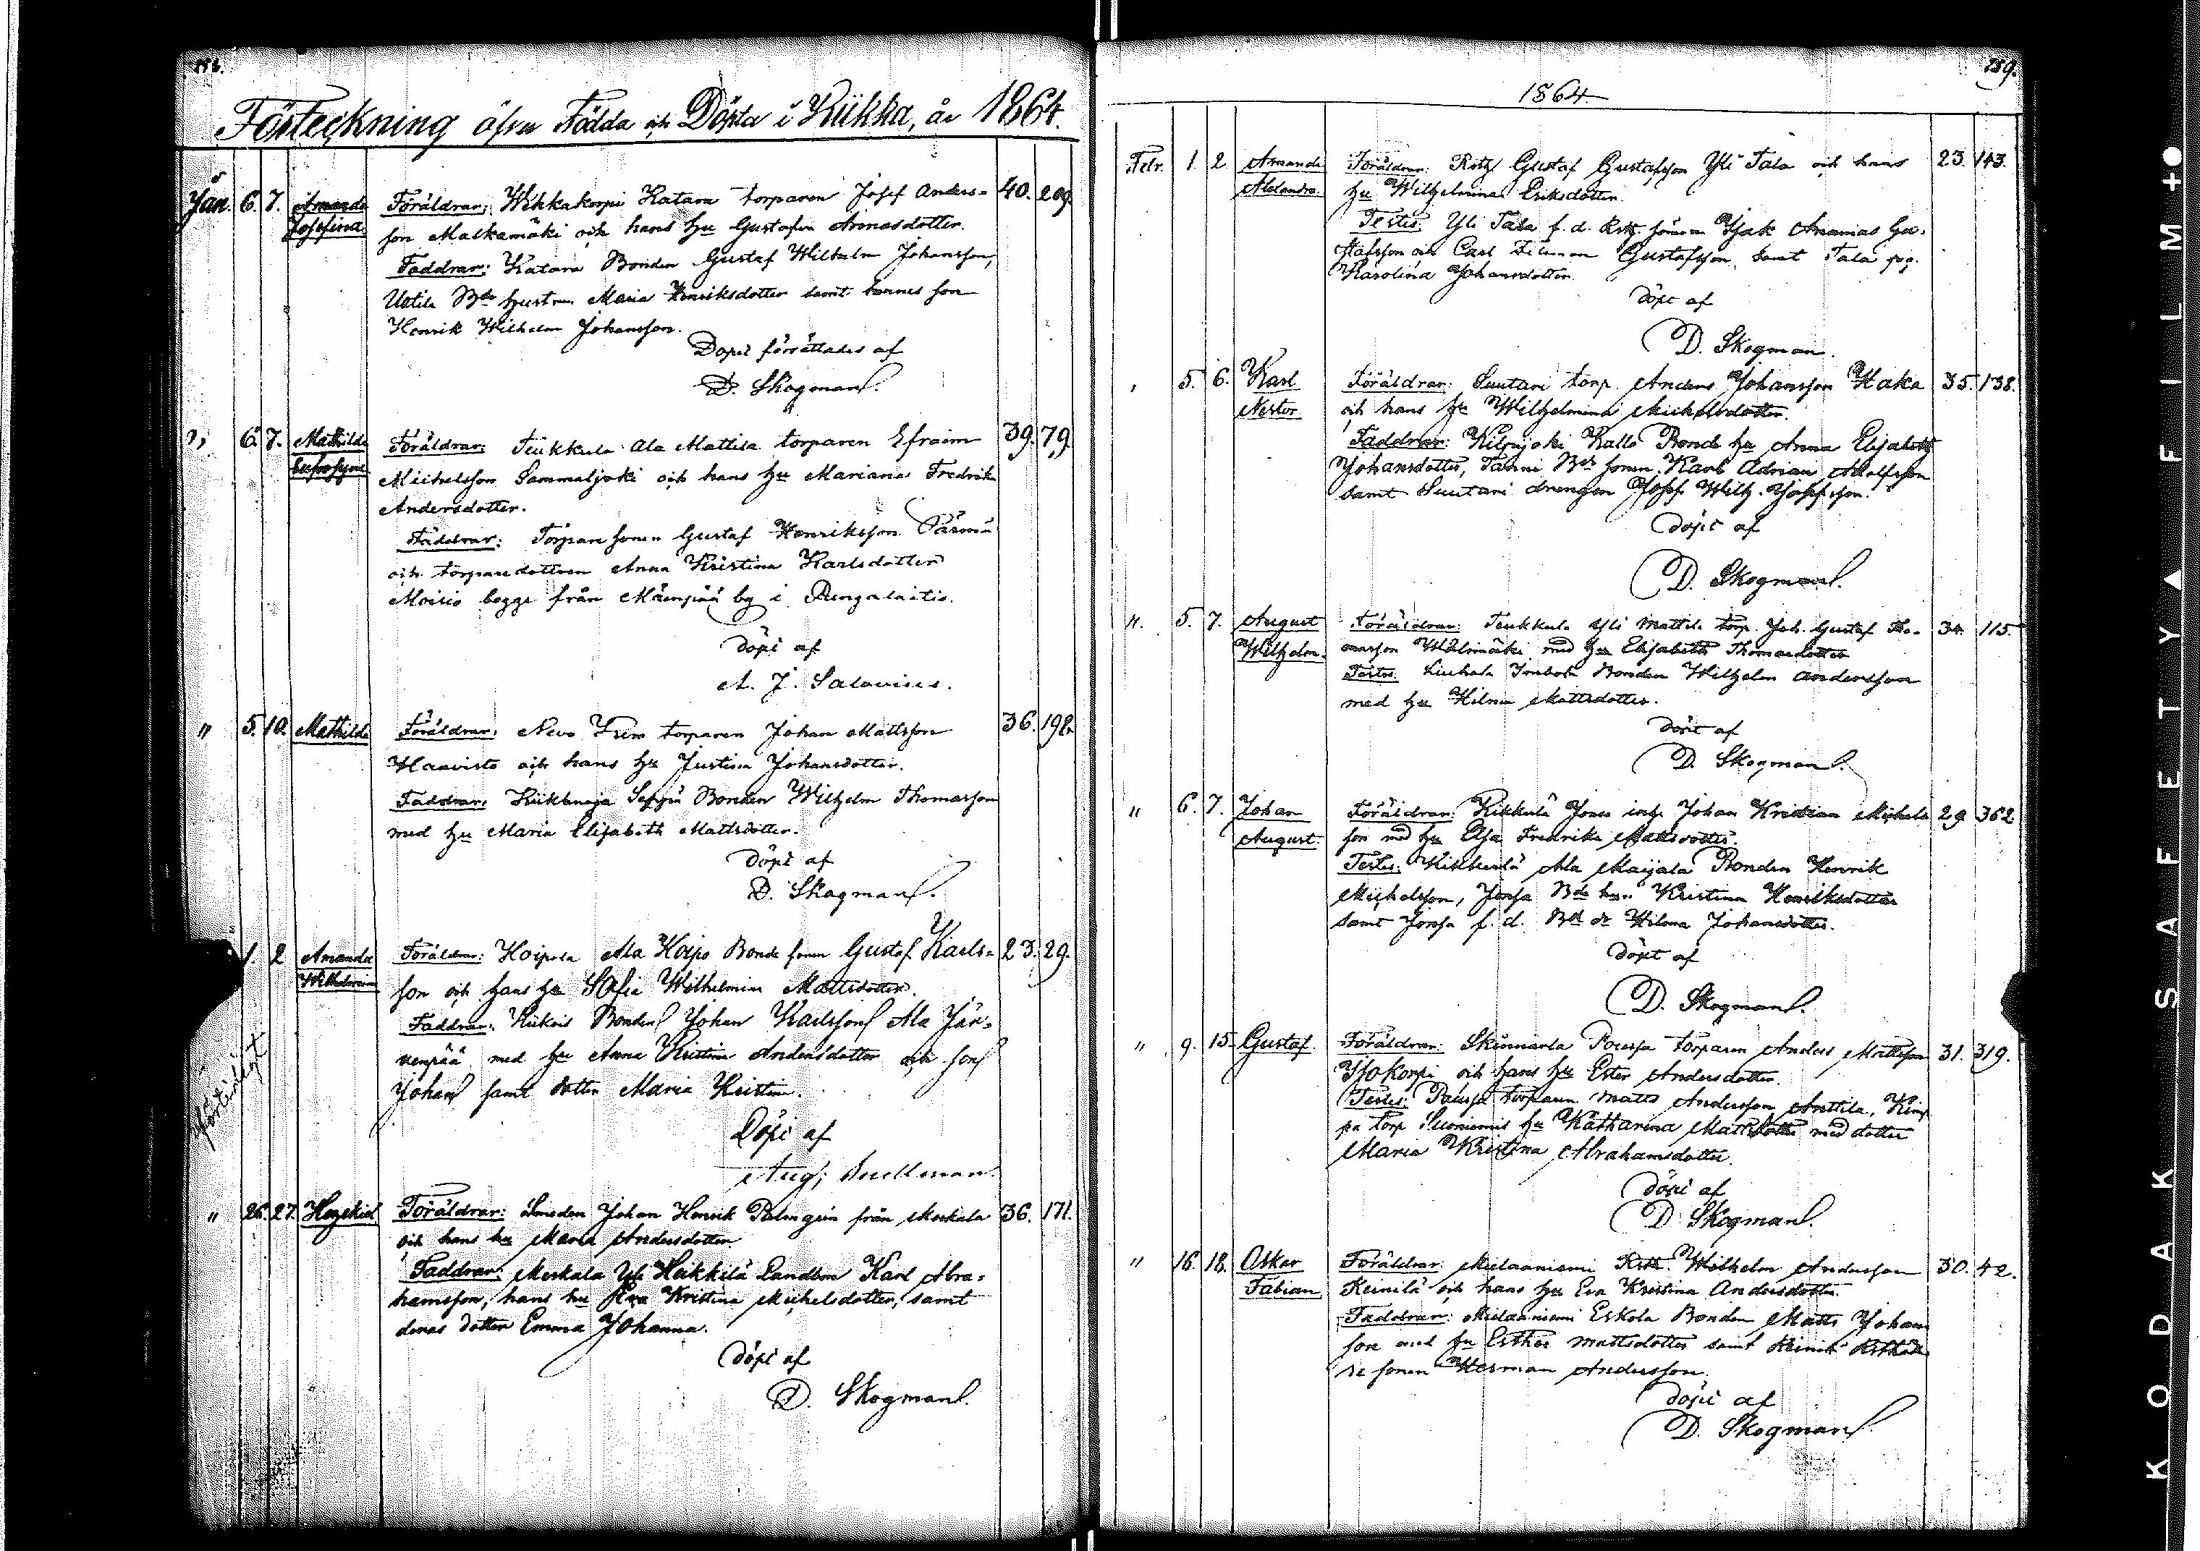 158.
Förteckning öfver Födda och Döpta i Kiikka, år 1864.
Jan. 6. 7. Amanda Föräldrar: Katara torparen Josef Anders- 40. 209.
Josefina son Malkamäki och hans hu Gustafva
Faddrar: Katara Bonden Gustaf Wilhelm Johansson,
Uotila Bde hustrun Maria Henriksdotter samt hennes son
Henrik Wilhelm Johansson.
Dopet förrättades af
D. Skogman.
" 6. 7. Mathilda Föräldrar: Ala Mattila torparen Efraim 39. 79.
Eufrosyne Michelsson Sammaljoki och hans hu Mariana Fredrika
Andersdotter.
Faddrar: Torpare sonen Gustaf Henriksson
och torparedottren Anna Kristina Karlsdotter
Moisio begge från by i Pungalaitio.
döpt af
A. J. Salovius.
" 5. 10. Mathilda Föräldrar: torparen Johan Mattsson 36. 198.
Haavisto och hans hu Justina Johansdotter.
Faddrar: Seppä Bonden Wilhelm Thomasson
med hu Maria Elisabeth Mattsdotter.
döpt af
D. Skogman.
1. 2 Amanda Föräldrar: Hoipola Ala Hoipo Bonde sonen Gustaf Karls- 23. 29.
Wilhelmina son och hans hu Sofia Wilhelmina Mattsdotter.
Faddrar: Bonden Johan Karlsson Ala Jär-
venpää med hu Anna Kristina Andersdotter och son
Johan samt dotter Maria Kristina.
Döpt af
Aug;
" 26. 27. Hezekiel Föräldrar: Smeden Johan Henrik Palmgrén från Meskala 36. 171.
och hans hu Maria Andersdotter.
Faddrar: Meskala Yli Heikkilä Landbon Karl Abra-
hamsson, hans hu Eva Kristina Michelsdotter, samt
deras dotter Emma Johanna.
döpt af
D. Skogman.
1864.
159.
Febr. 1. 2 Amanda Föräldrar: Gustaf Gustafsson Yli Tala och hans 23. 143.
Alexandra. hu Wilhelmina Eriksdotter.
Testes: Yli Tala f. d. sönerna Isak Ananias Gu-
stafsson och Carl Gustafsson, samt Tala pig.
Karolina Johansdotter.
döpt af
D. Skogman.
" 5. 6. Karl Föräldrar: Suutari torp. Anders Johansson Haka 35. 138.
Nestor. och hans hu Wilhelmina Michelsdotter.
Faddrar: Kilpijoki Kallo Bonde hu Anna Elisabeth
Johansdotter, Tanni Bde sonen Karl Adrian Adolfsson
samt Suutari drengen Josef Wilh. Josefsson.
döpt af
D. Skogman.
" 5. 7. August Föräldrar: Yli Mattila torp. Joh. Gustaf Tho- 34. 115.
Wilhelm. masson med hu Elisabeth Thomasdotter
Testes: Bonden Wilhelm Andersson
med hu Hilma Mattsdotter.
döpt af
D. Skogman.
" 6. 7. Johan Föräldrar: Kikkulä Johan Kristian Michels 29. 362
August. son med hu Elsa Fredrika Mattsdotter.
Testes: Ala Maijala Bonden Henrik
Michelsson, Bde hu Kristina Henriksdotter
samt f. d. Bde dr Hilma Johansdotter.
döpt af
D. Skogman.
" 9. 15. Gustaf. Föräldrar: Skinnarla torparen Anders Mattsson 31. 319.
Isokorpi och hans hu Ester Andersdotter.
Testes: torparen Matts Andersson Anttila,
torp Suoniemi hu Katharina Mattsdotter med dotter
Maria Kristina Abrahamsdotter.
döpt af
D. Skogman.
" 16. 18. Oskar Föräldrar: Wilhelm Andersson 30. 42.
Fabian Keinilä och hans hu Eva Kristina Andersdotter.
Faddrar: Eskola Bonden Matts Johans
son med hu Esther Mattsdotter samt
sonen Herman Andersson.
döpt af
D. Skogman.
KODAK SAFETY ▲ FILM +●